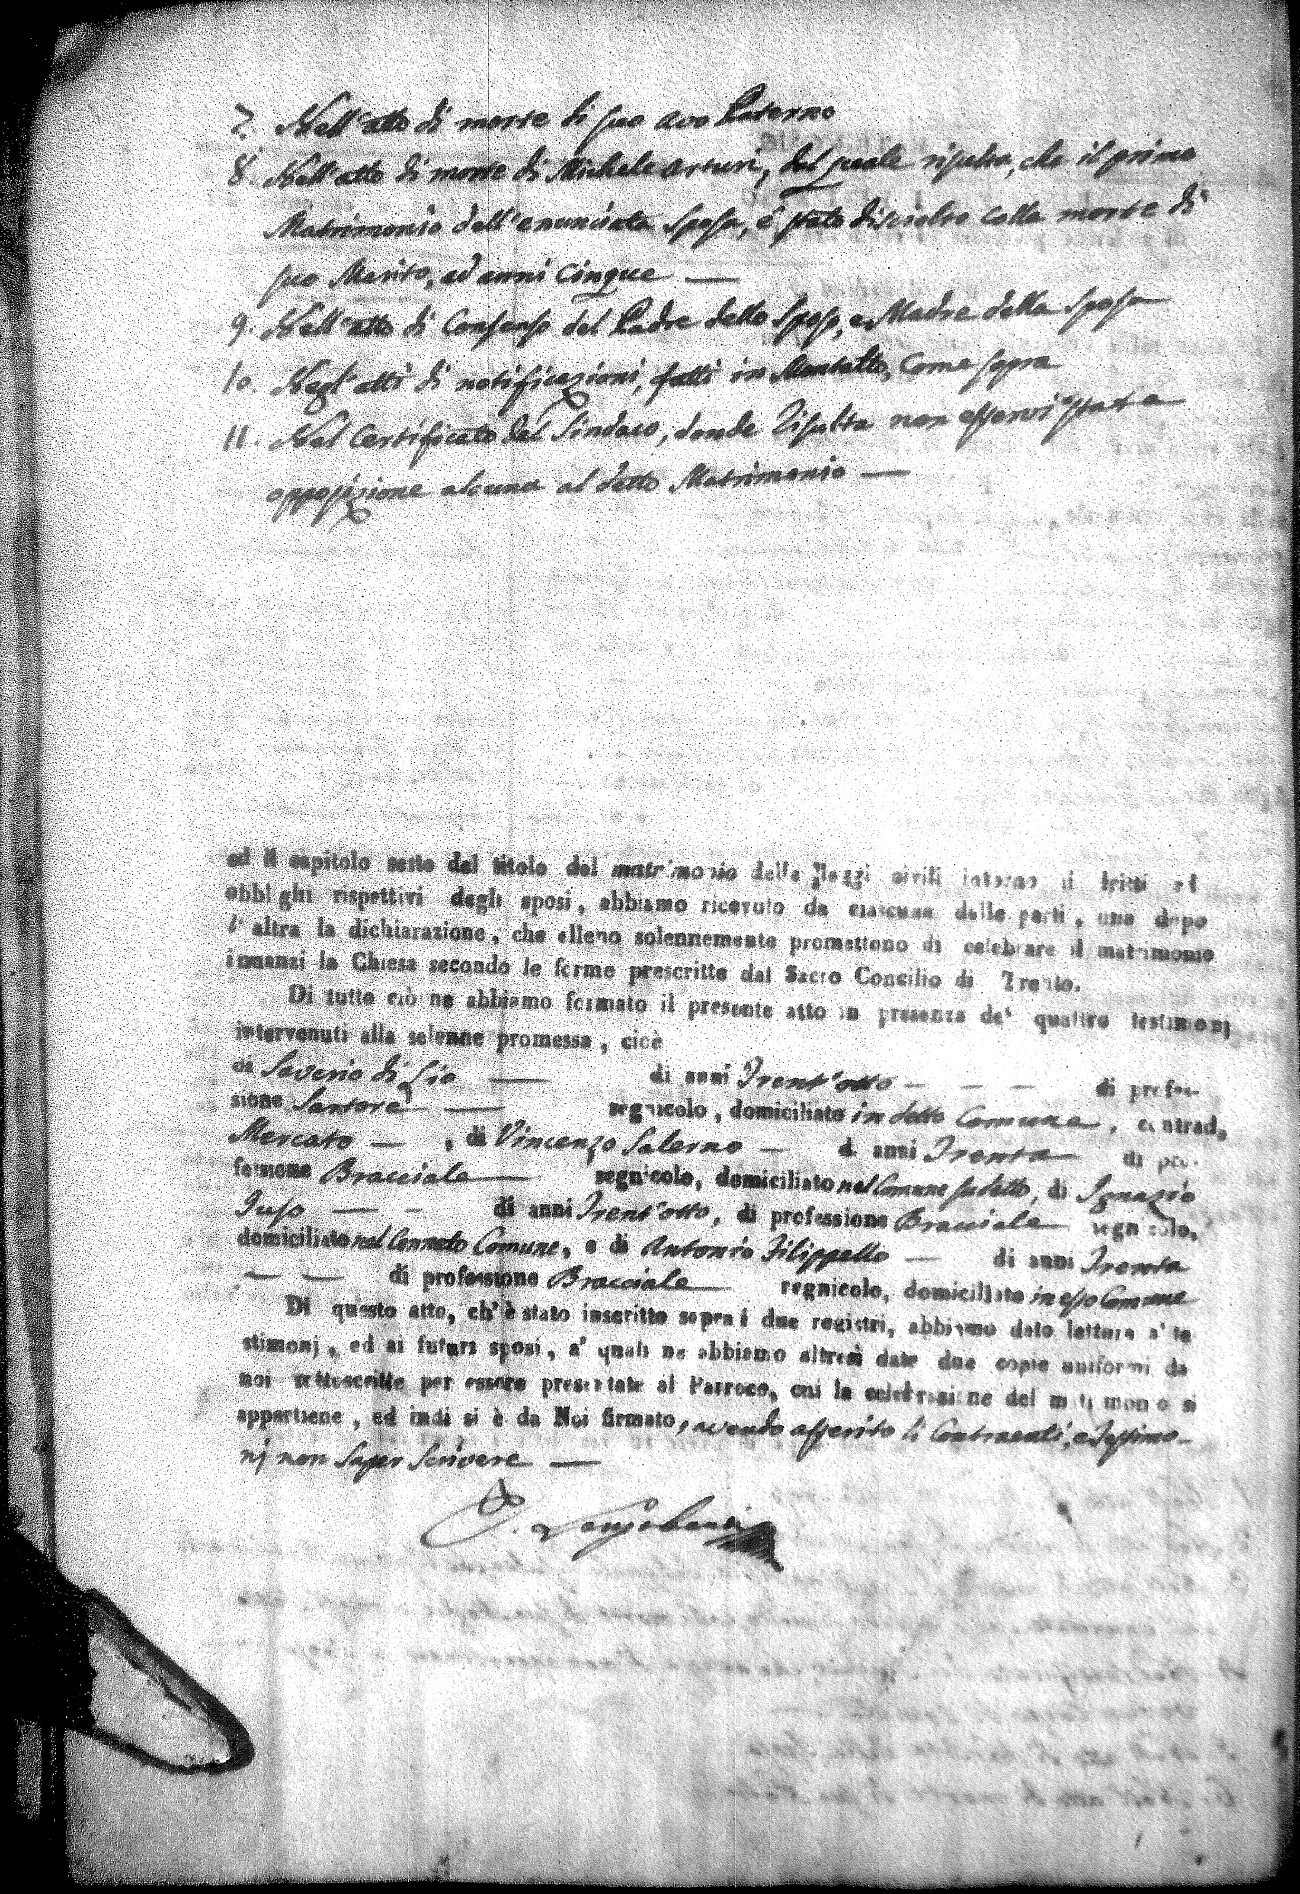 7. Nell'atto di morte di suo avo Paterno
8. Nell'atto di morte di Michele Arturi, dal quale risulta, che il primo
Matrimonio dell'enunciata Sposa, è stato disciolto colla morte di
suo Marito, ad anni cinque —
9. Nell'atto di Consenso del Padre dello Sposo, e Madre della Sposa
10. Negl'atti di notificazioni, fatti in Montalto, come sopra
11. Nel Certificato del Sindaco, donde risulta non esservi stata
opposizione alcuna al detto Matrimonio —
ed il capitolo sesto del titolo del matrimonio delle Leggi civili intorno ai dritti ed
obblighi rispettivi degli sposi, abbiamo ricevuto da ciascuna delle parti, una dopo
l'altra la dichiarazione, che elleno solennemente promettono di celebrare il matrimonio
innanzi la Chiesa secondo le forme prescritte dal Sacro Concilio di Trento.
Di tutto ciò ne abbiamo formato il presente atto in presenza de' quattro testimonj
intervenuti alla solenne promessa, cioè
di Saverio di Lio — di anni Trent'otto — — — di profes-
sione Sartore — regnicolo, domiciliato in detto Comune, contrad,
Mercato — , di Vincenzo Salerno — di anni Trenta di pro-
fessione Bracciale — regnicolo, domiciliato nel Comune sudetto, di Ignazio
Fuso — - di anni Trent'otto, di professione Bracciale — regnicolo,
domiciliato nel Connato Comune, e di Antonio Filippello — di anni Trenta
— — di professione Bracciale — regnicolo, domiciliato in esso Comune
Di questo atto, ch'è stato inscritto sopra i due registri, abbiamo dato lettura a' te
stimonj, ed ai futuri sposi, a' quali ne abbiamo altresì date due copie uniformi da
noi sottoscritte per essere presentate al Parroco, cui la celebrazione del matrimonio si
appartiene, ed indi si è da Noi firmato, avendo asserito li Contraenti, e Testimo-
nj non saper scrivere —